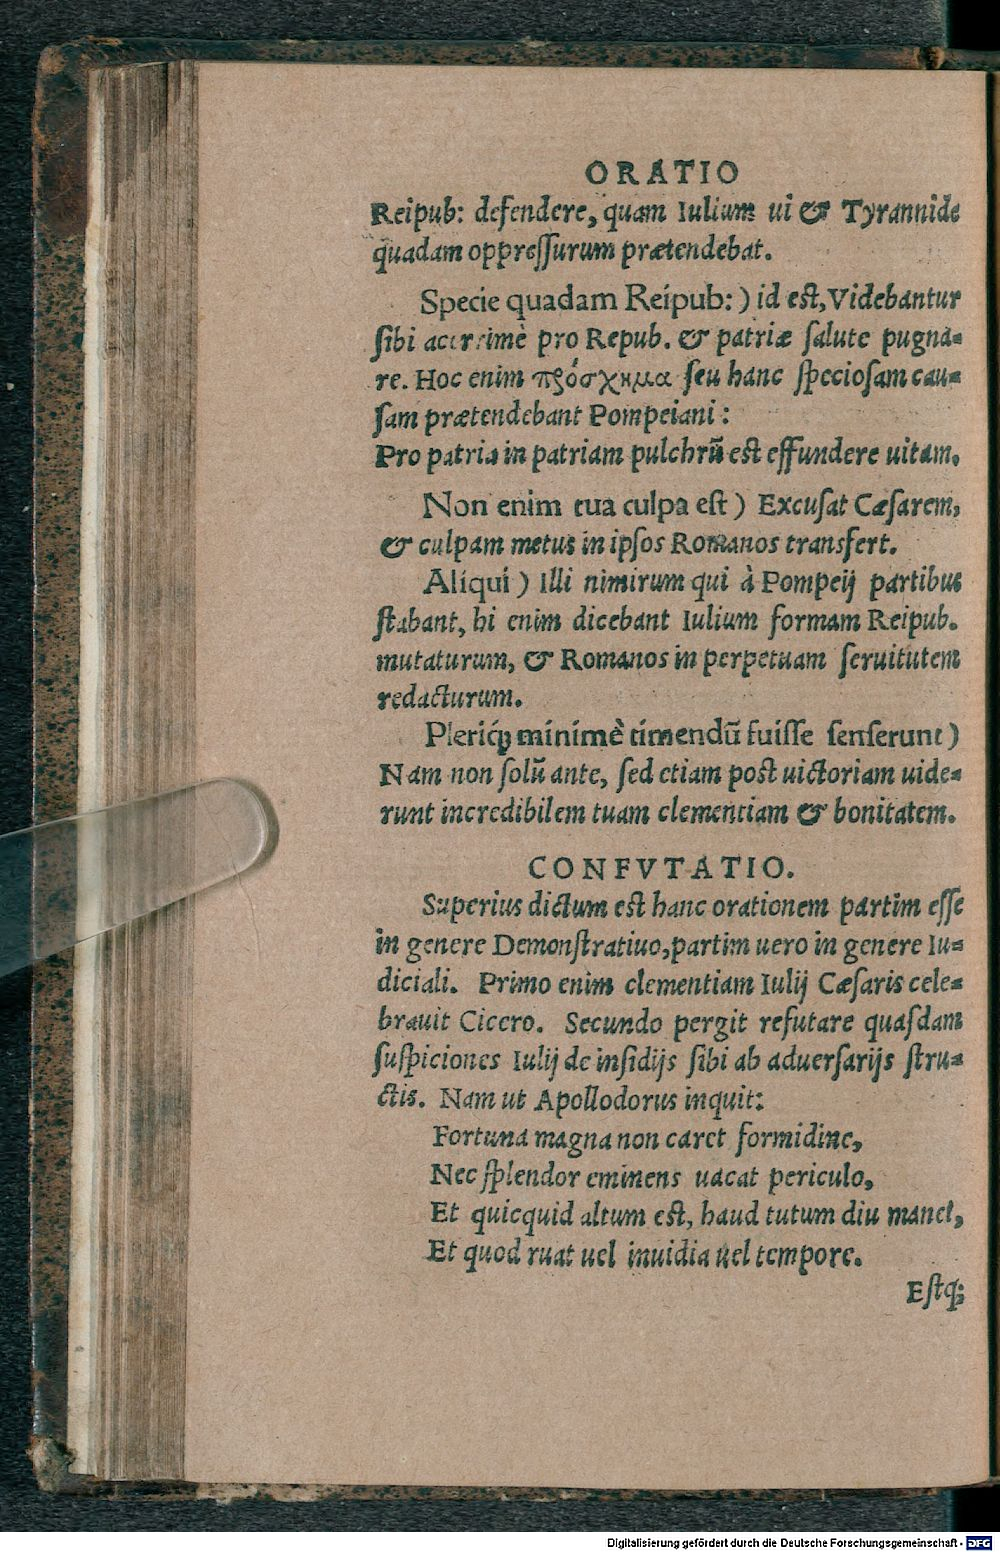 ORATIO
Reipub: defendere, quam Iulium ui & Tyrannide
quadam oppreſſurum prætendebat.
Specie quadam Reipub: ) id eſt, Videbantur
ſibi acerrimè pro Repub. & patriæ ſalute pugna-
re. Hoc enim πρόσχημα ſeu hanc ſpecioſam cau-
ſam prætendebant Pompeiani:
Pro patria in patriam pulchrū eſt effundere uitam.
Non enim tua culpa eſt ) Excuſat Cæſarem,
& culpam metus in ipſos Romanos transfert.
Aliqui ) Illi nimirum qui à Pompeij partibus
ſtabant, hi enim dicebant Iulium formam Reipub.
mutaturum, & Romanos in perpetuam ſeruitutem
redacturum.
Pleriq; minimè timendū fuiſſe ſenſerunt )
Nam non ſolū ante, ſed etiam poſt uictoriam uide-
runt incredibilem tuam clementiam & bonitatem.
CONFVTATIO.
Superius dictum eſt hanc orationem partim eſſe
in genere Demonſtratiuo, partim uero in genere Iu-
diciali. Primo enim clementiam Iulij Cæſaris cele-
brauit Cicero. Secundo pergit refutare quaſdam
ſuſpiciones Iulij de inſidijs ſibi ab aduerſarijs ſtru-
ctis. Nam ut Apollodorus inquit:
Fortuna magna non caret formidine,
Nec ſplendor eminens uacat periculo,
Et quicquid altum eſt, haud tutum diu manet,
Et quod ruat uel inuidia uel tempore.
Eſtq;
Digitalisierung gefördert durch die Deutsche Forschungsgemeinschaft - DFG